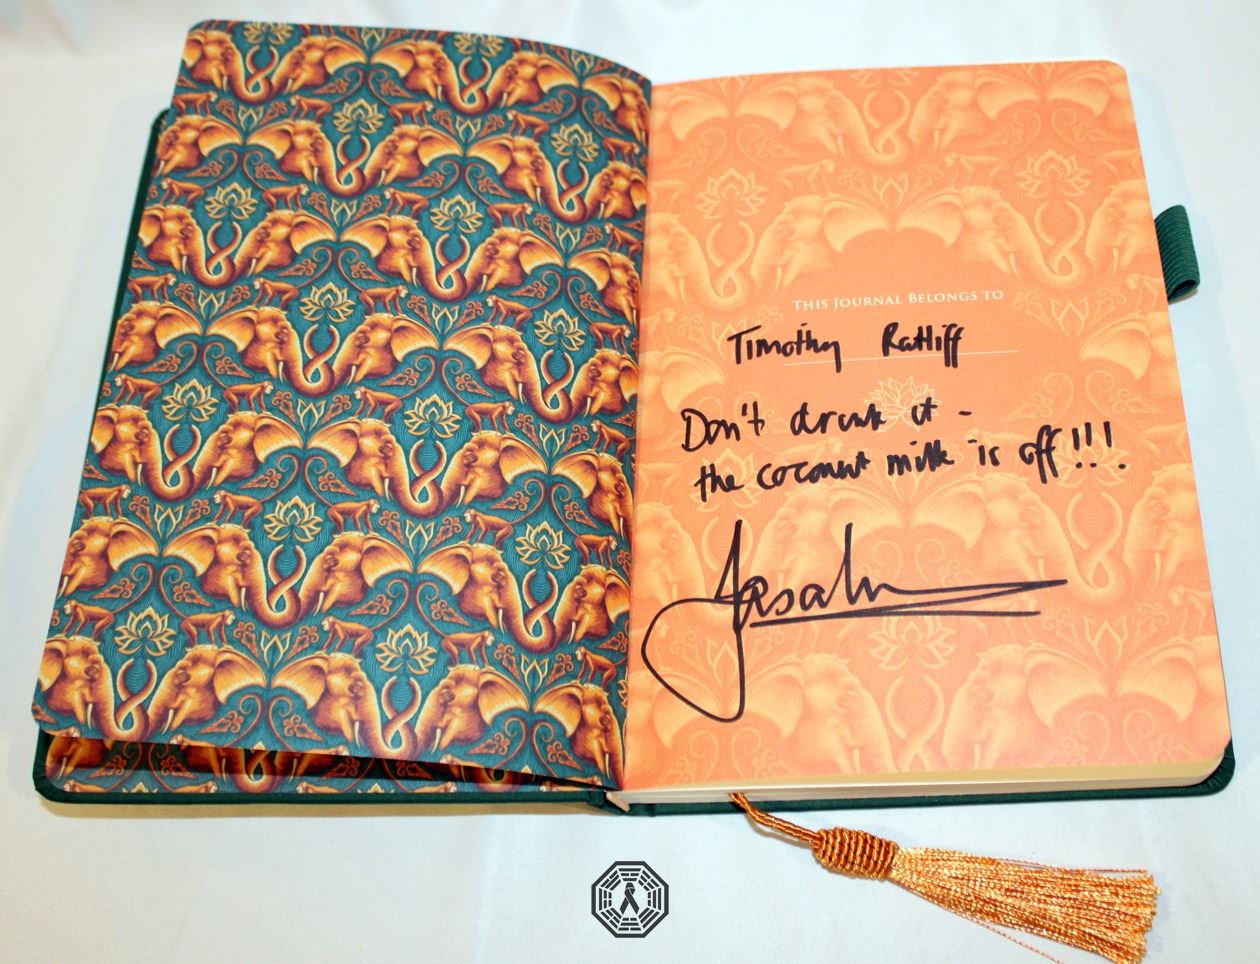 THIS JOURNAL BELONGS TO
Timothy Ratliff
Don't drink it -
the coconut milk is off!!!